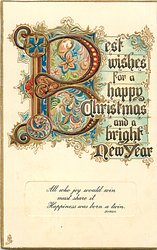 Best
wishes
for a
happy
Christmas
and a
bright
New Year
All who joy would win
must share it
Happiness was born a twin.
BYRON